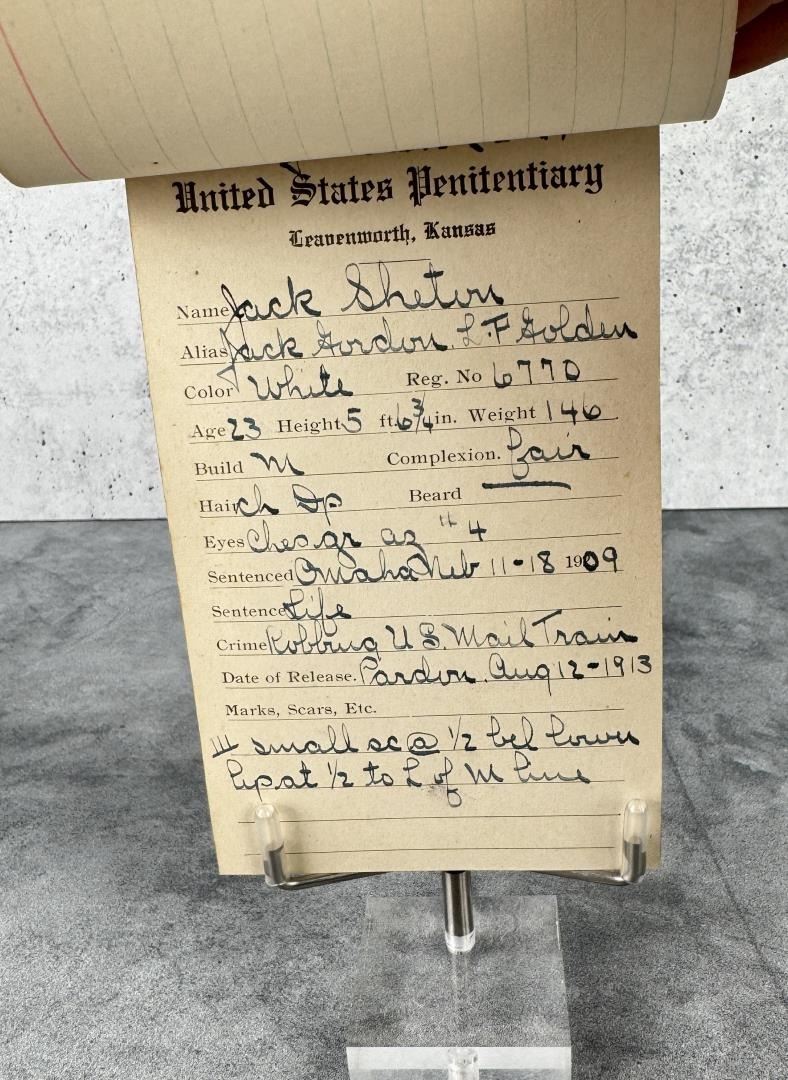 United States Penitentiary
Leavenworth, Kansas
Name Jack Shelton
Alias Jack Gordon. L F Golden
Color White Reg. No 6770
Age 23 Height 5 ft. 6 3/4 in. Weight 146
Build M Complexion. fair
Hair ch Dp Beard
Eyes Ches gr az # 4
Sentenced Omaha Neb 11-18 1909
Sentence Life
Crime Robbing U S. Mail Train
Date of Release. Pardon. Aug 12-1913
Marks, Scars, Etc.
III small sc @ 1/2 bel lower
lip at 1/2 to L of M line